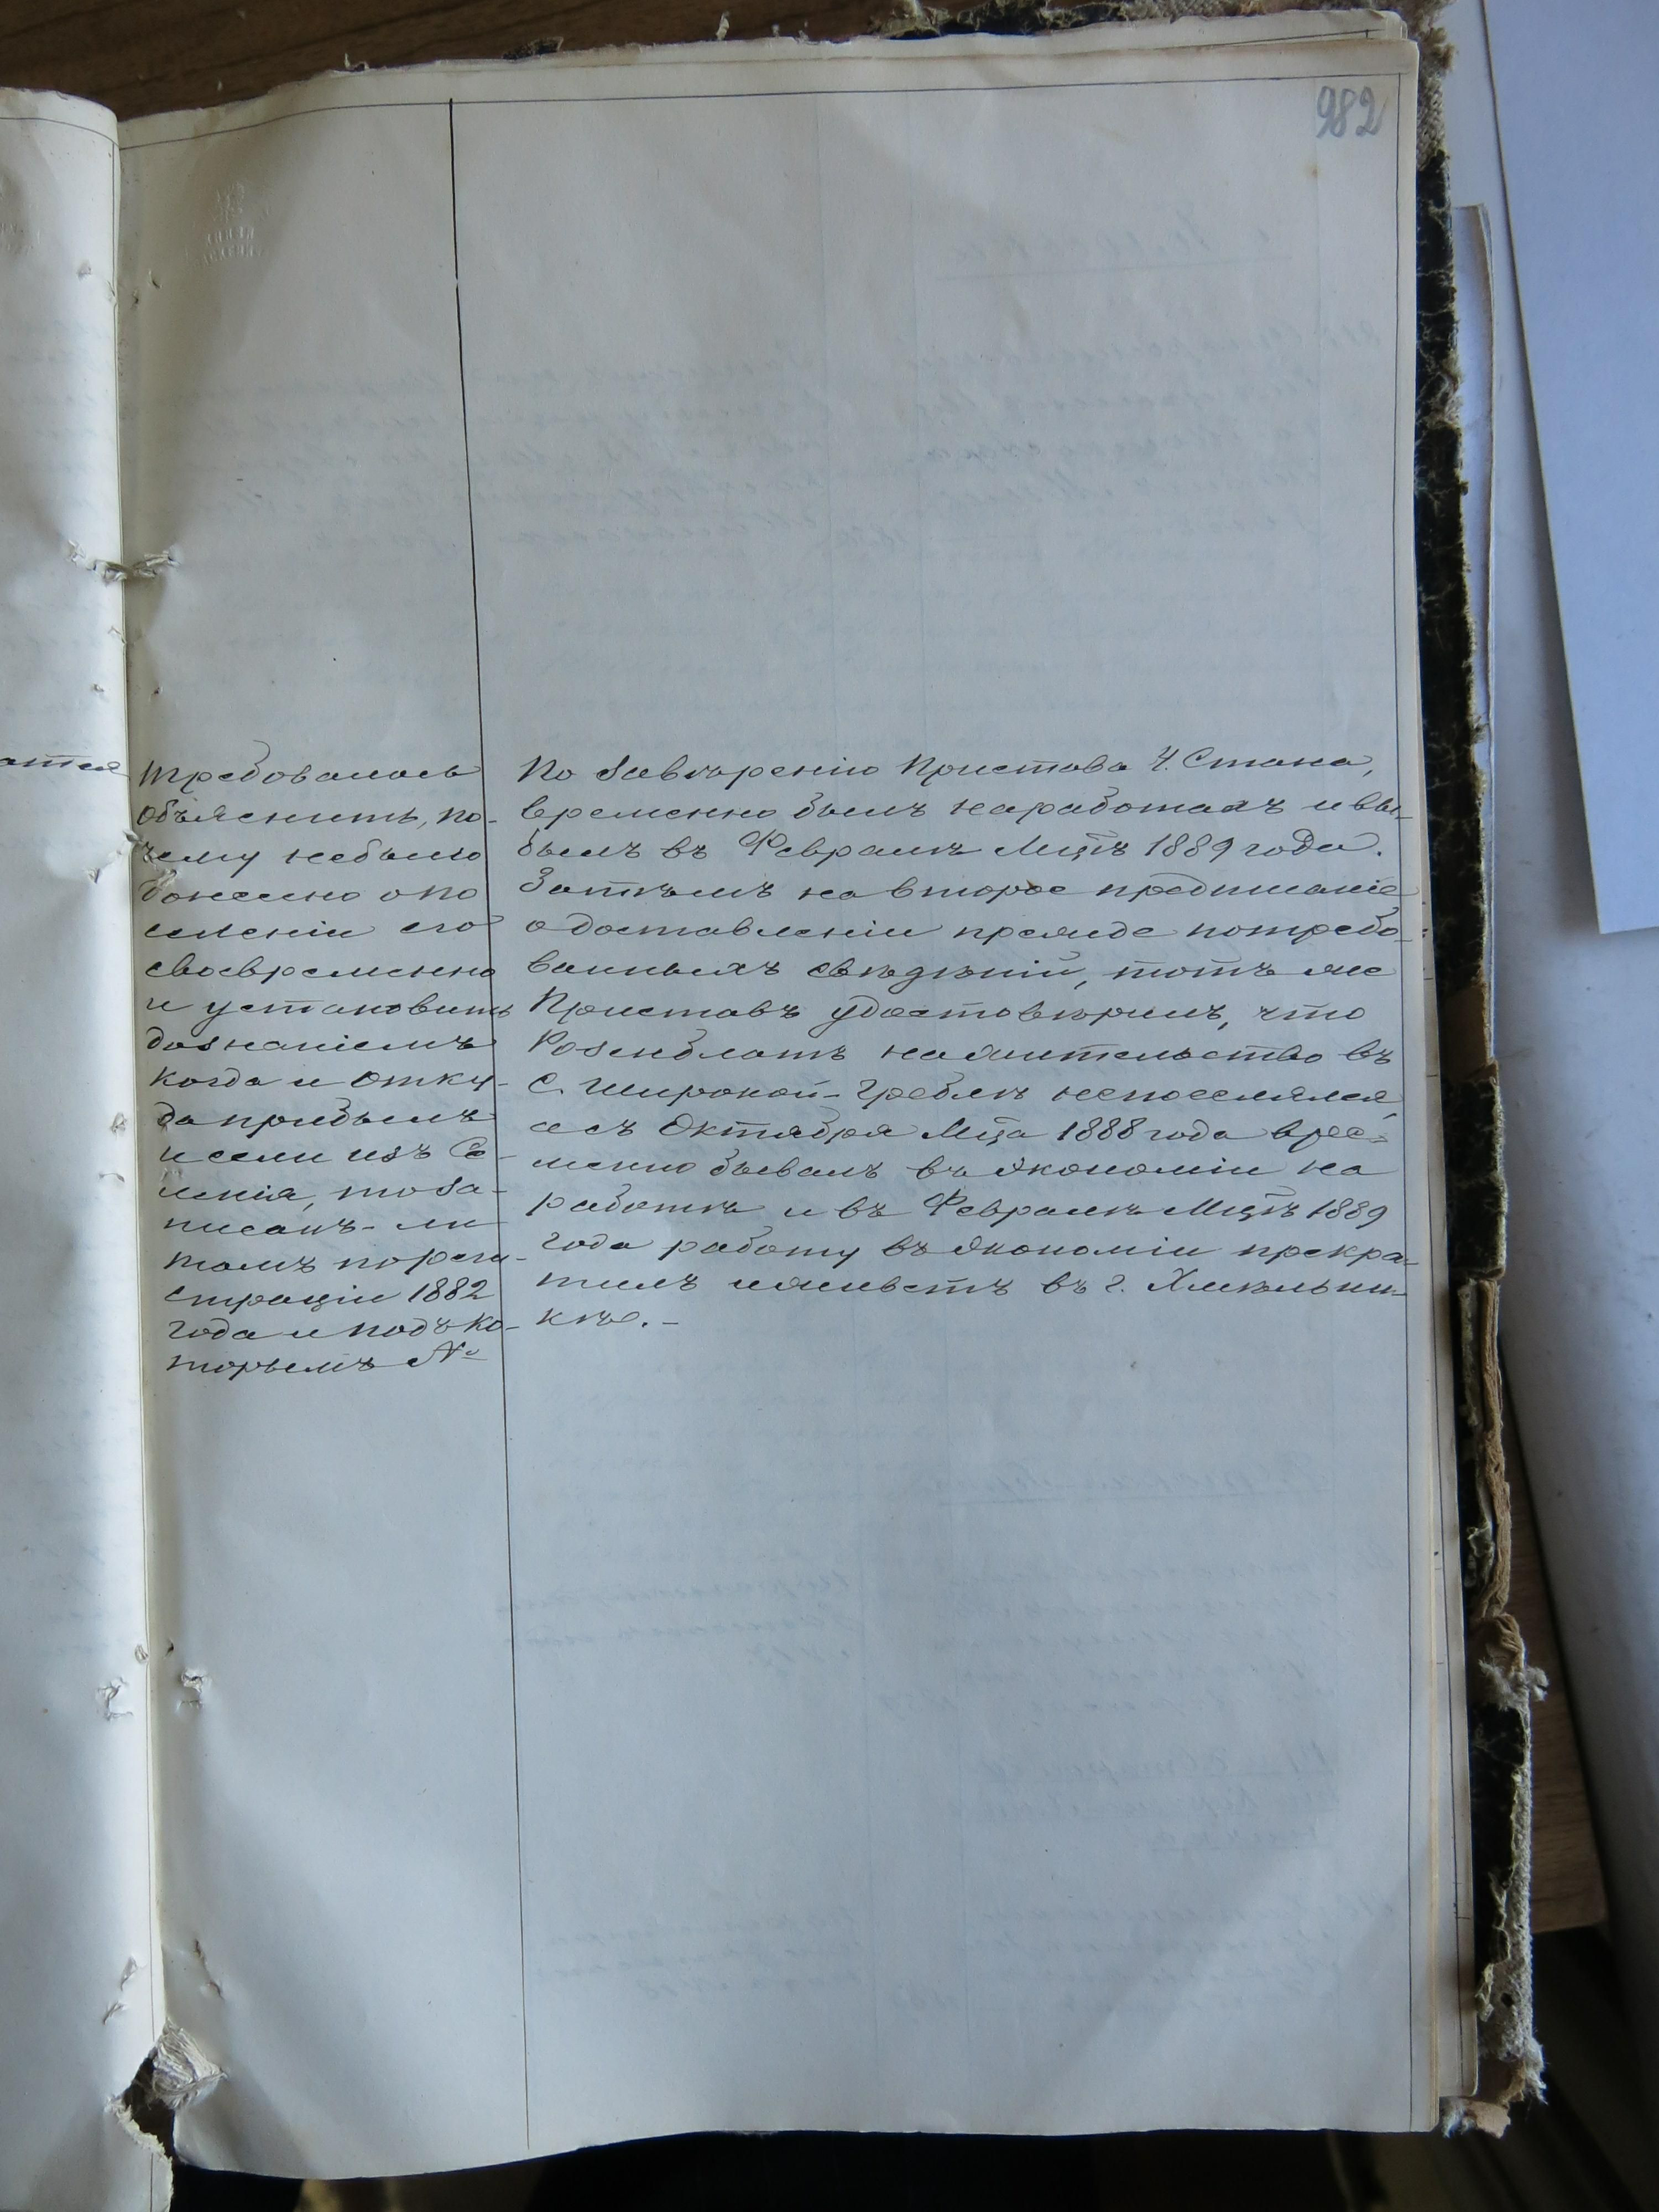 982
Требовалось
объяснить, по-
чему небыло
донесено о по
селеніи его
своевременно
и установить
дознаніемъ
когда и отку-
да прибылъ
и если изъ Се-
ленія, то за-
писанъ-ли
тамъ по реги-
страціи 1882
года и подъ ко-
торымъ №
По завѣренію Пристава 4. Стана,
временно былъ на работахъ и вы-
былъ въ Февралѣ Мцѣ 1889 года.
Затѣмъ на второе предписаніе
о доставленіи прежде потребо-
ванныхъ свѣдѣній, тотъ же
Приставъ удостовѣрилъ, что
Розенблатъ на жительство въ
С. Широкой-Греблѣ непоселялся,
а съ Октября Мца 1888 года вре-
менно бывалъ въ экономіи на
работѣ и въ Февралѣ Мцѣ 1889
года работу въ экономіи прекра-
тилъ и живетъ въ г. Хмѣльни-
кѣ.-